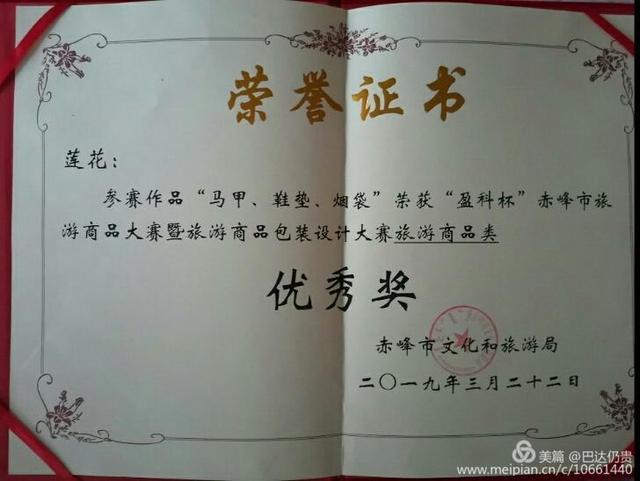 荣誉证书
莲花：
参赛作品“马甲、鞋垫、烟袋”荣获“盈科杯”赤峰市旅
游商品大赛暨旅游商品包装设计大赛旅游商品类
优秀奖
赤峰市文化和旅游局
二〇一九年三月二十二日
美篇 @巴达仍贵
www.meipian.cn/c/10661440